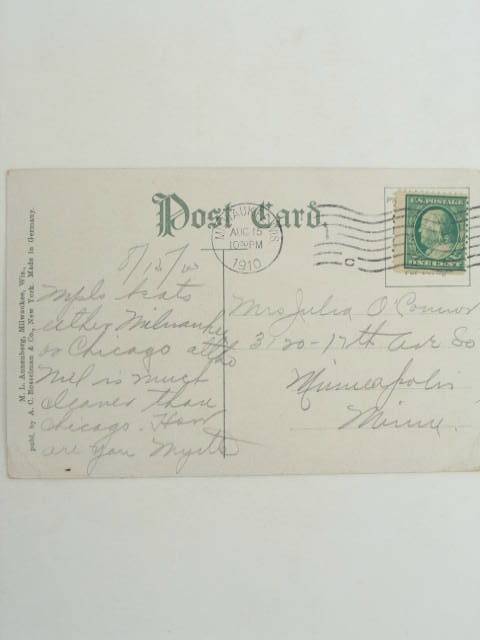 Post Card.
MILWAUKEE, WIS.
AUG 15
10 PM
1910
C
U.S. POSTAGE
ONE CENT
M. L. Annenberg, Milwaukee, Wis.,
publ. by A. C. Bosselman & Co., New York. Made in Germany.
8/15/10
Mpls beats
either Milwaukee
or Chicago altho
Mil is much
cleaner than
Chicago. How
are you
Mrs Julia O'Connor
3120-17th Ave So
Minneapolis
Minn.